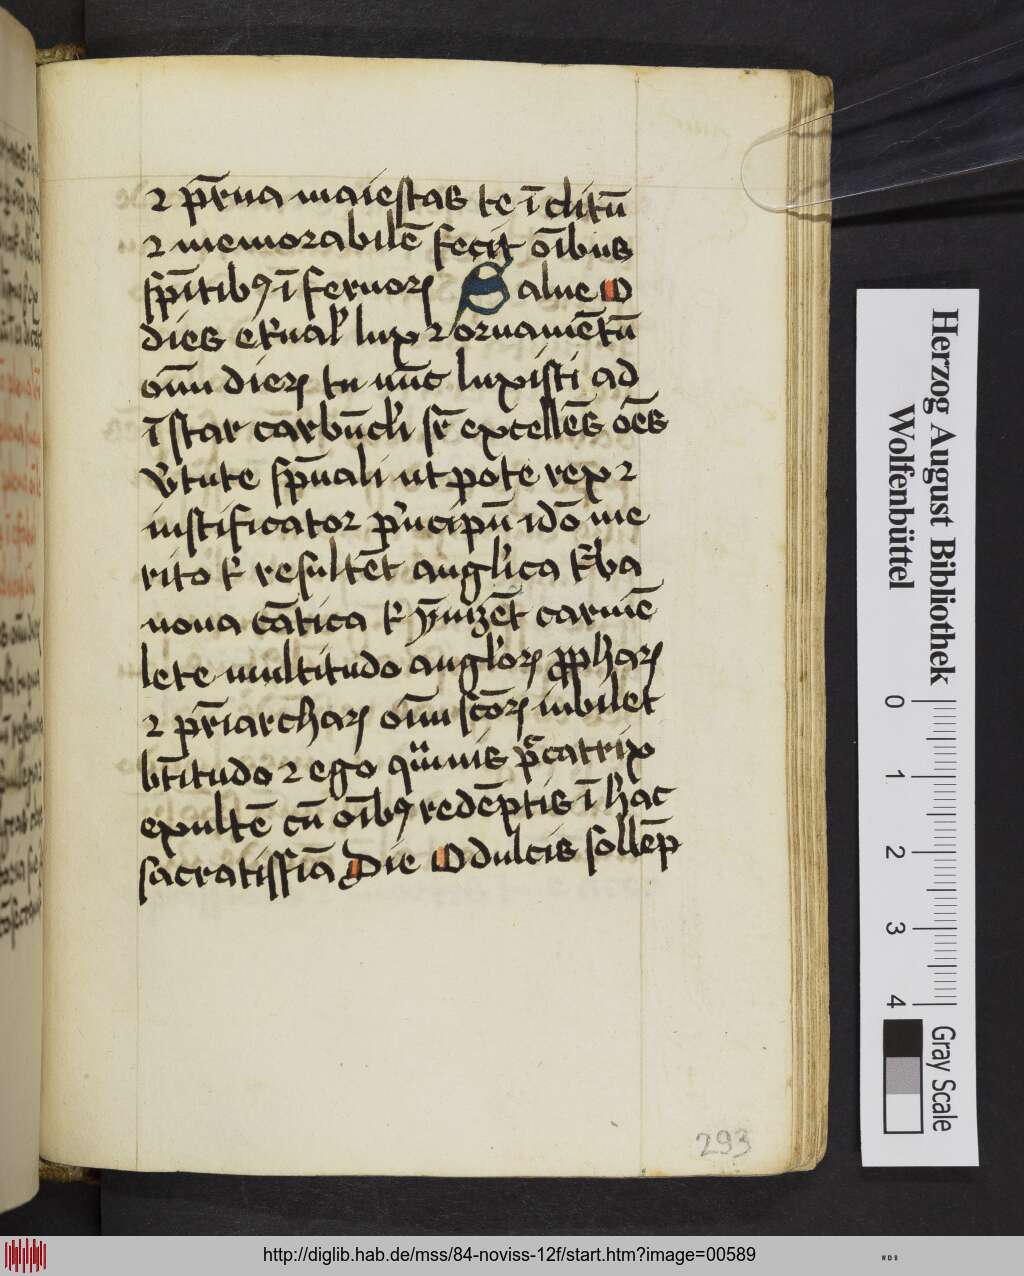 ⁊ pr̄na maiestas te ī clitū
⁊ memorabilē fecit oībus
spīitibꝰ ī feruorꝫ Salue O
dies et̄nal' lux ⁊ ornamētū
oīm dierꝫ tu nūc luxisti ad
īstar cārbūcli sr̄ excellēs oēs
v̓tute sp̄uali ut pote rex ⁊
iustificator p̓ncipū idō me
rito t̓ resultēt angl'ica t̓ba
noua cātica t̓ ȳnizēt carmē
lete multitudo angl'orꝫ ꝓphārꝫ
⁊ pr̄iarcharꝫ oīm scōrꝫ iubilet
bt̄itudo ⁊ ego quīuis pccatrix
exultē cū oībꝰ redēptis ī hac
sacratissīa die O dulcis sollēp
293
Herzog August Bibliothek
Wolfenbüttel
0 1 2 3 4
Gray Scale
http://diglib.hab.de/mss/84-noviss-12f/start.htm?image=00589